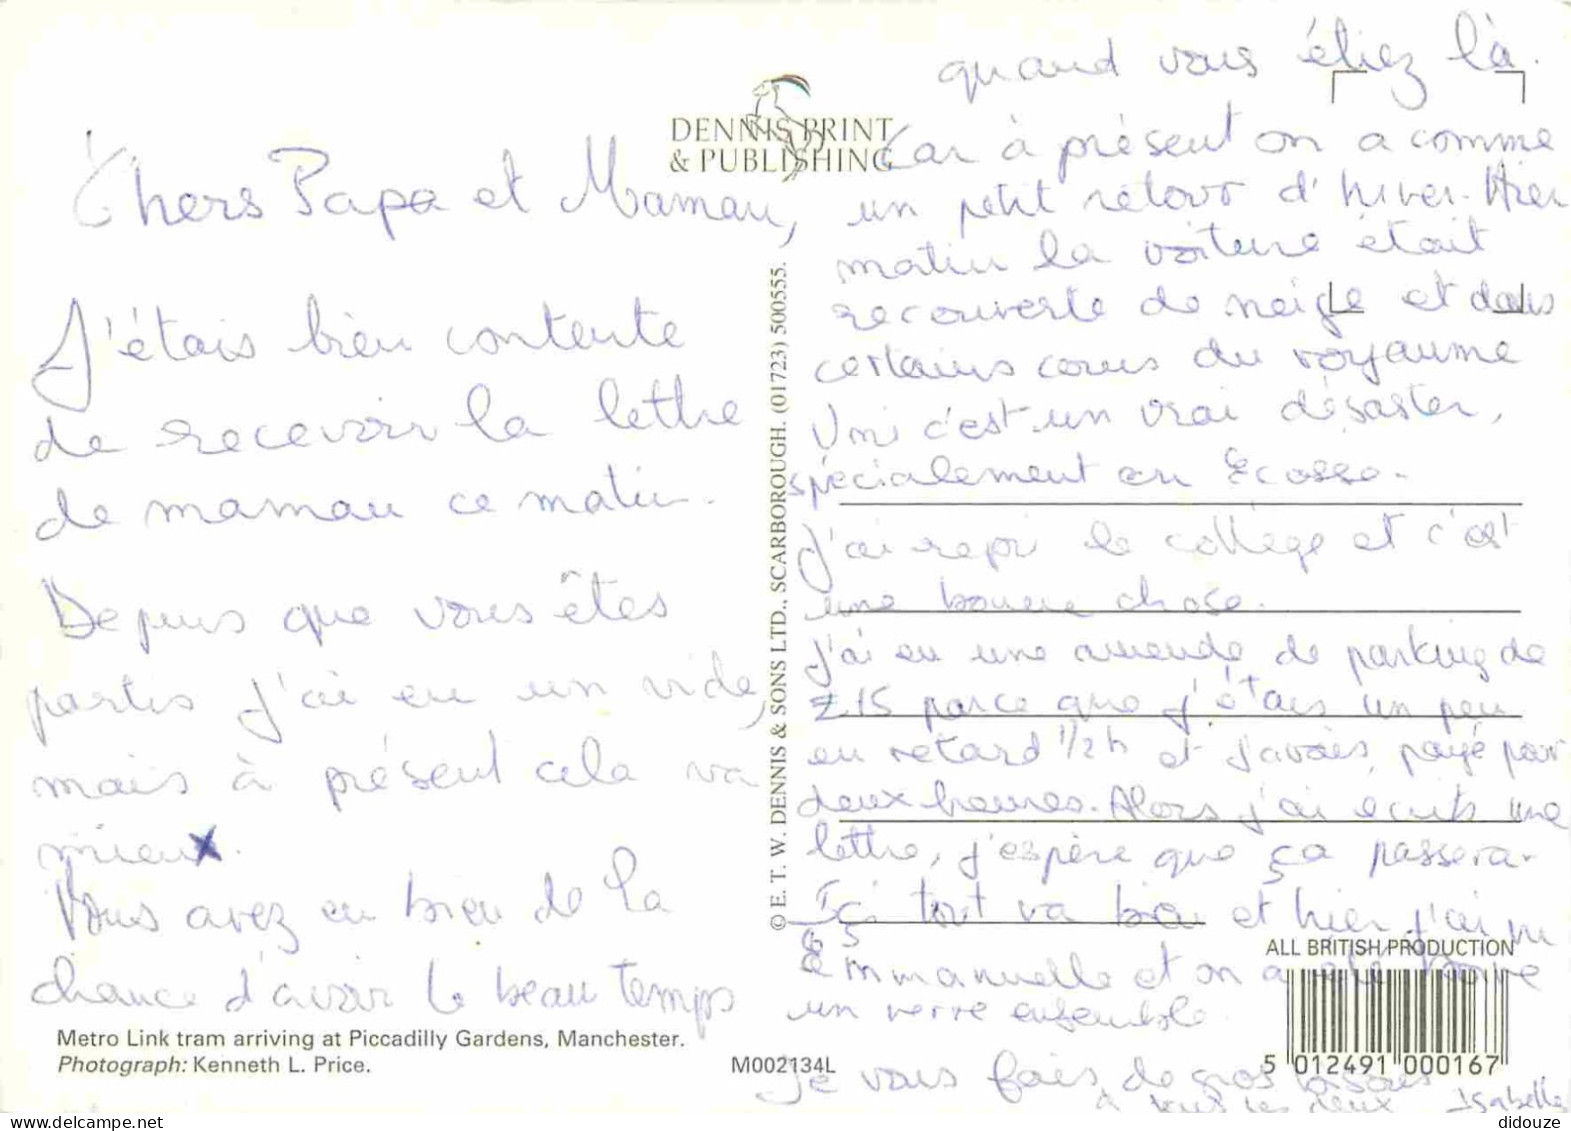 Chers Papa et Maman,
J'étais bien contente
de recevoir la lettre
de maman ce matin.
Depuis que vous êtes
partis j'ai eu un vide,
mais à présent cela va
mieux.
Vous avez eu bien de la
chance d'avoir le beau temps
Metro Link tram arriving at Piccadilly Gardens, Manchester.
Photograph: Kenneth L. Price.
DENNIS PRINT
& PUBLISHING
© E. T. W. DENNIS & SONS LTD., SCARBOROUGH. (01723) 500555.
M002134L
quand vous étiez là.
Car à présent on a comme
un petit retour d'hiver. Hier
matin la voiture était
recouverte de neige et dans
certains coins du royaume
Uni c'est un vrai désaster,
spécialement en Ecosse.
J'ai repri le collège et c'est
une bonne chose.
J'ai eu une amende de parking de
£15 parce que j'étais un peu
en retard 1/2 h et j'avais payé pour
deux heures. Alors j'ai écrits une
lettre, j'espère que ça passera.
Ici tout va bien et hier j'ai vu
Emmanuelle et on a été boire
un verre ensemble.
Je vous fais de gros bisous
à tous les deux Isabelle
ALL BRITISH PRODUCTION
5 012491 000167
delcampe.net
didouze